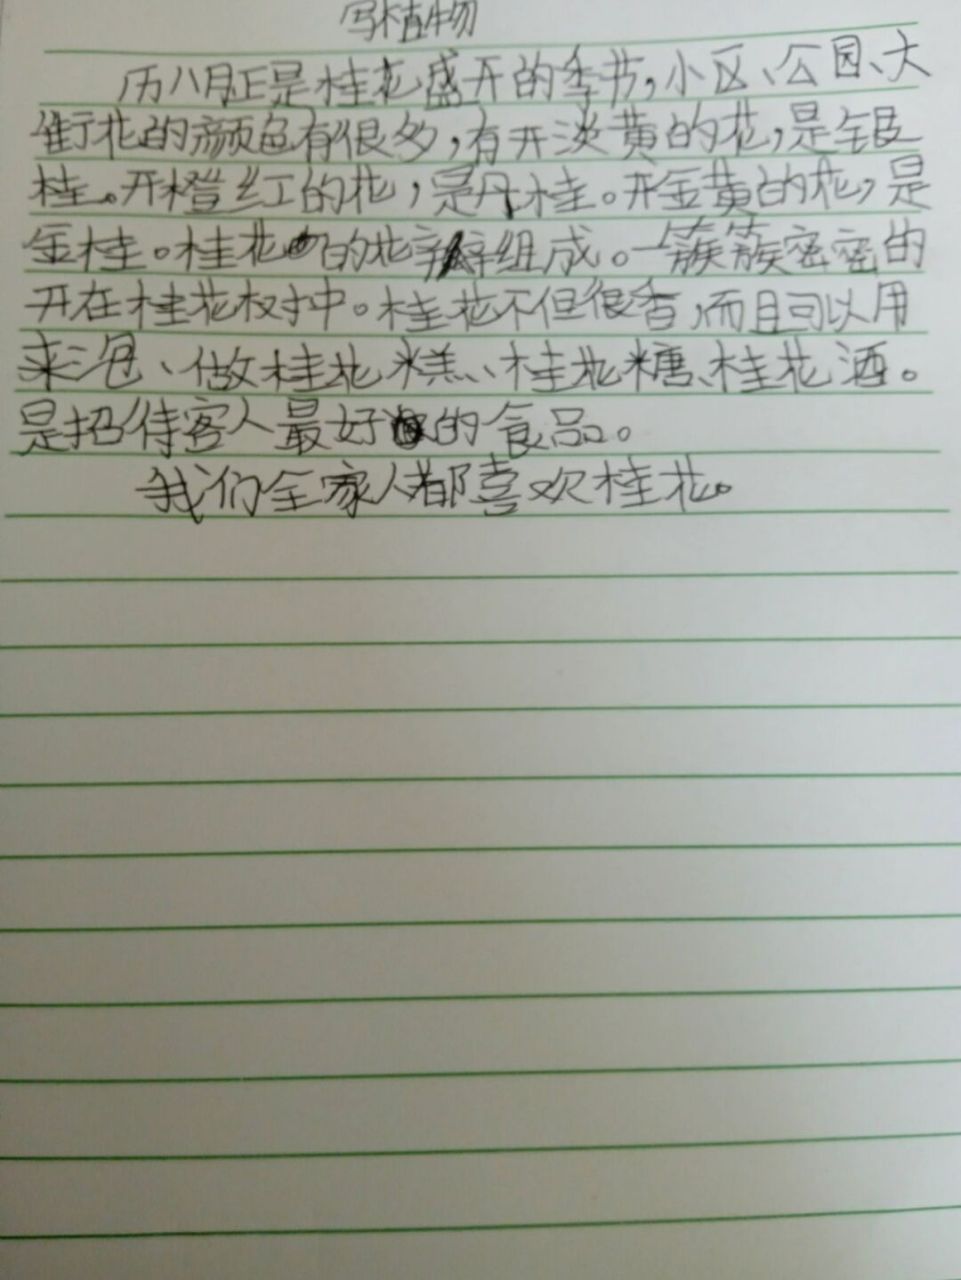 写植物
历八月正是桂花盛开的季节，小区、公园、大
街花的颜色有很多，有开淡黄的花，是银
桂。开橙红的花，是丹桂。开金黄的花，是
金桂。桂花的花瓣组成。一簇簇密密的
开在桂花树中。桂花不但很香，而且可以用
来泡、做桂花糕、桂花糖、桂花酒。
是招待客人最好的食品。
我们全家人都喜欢桂花。